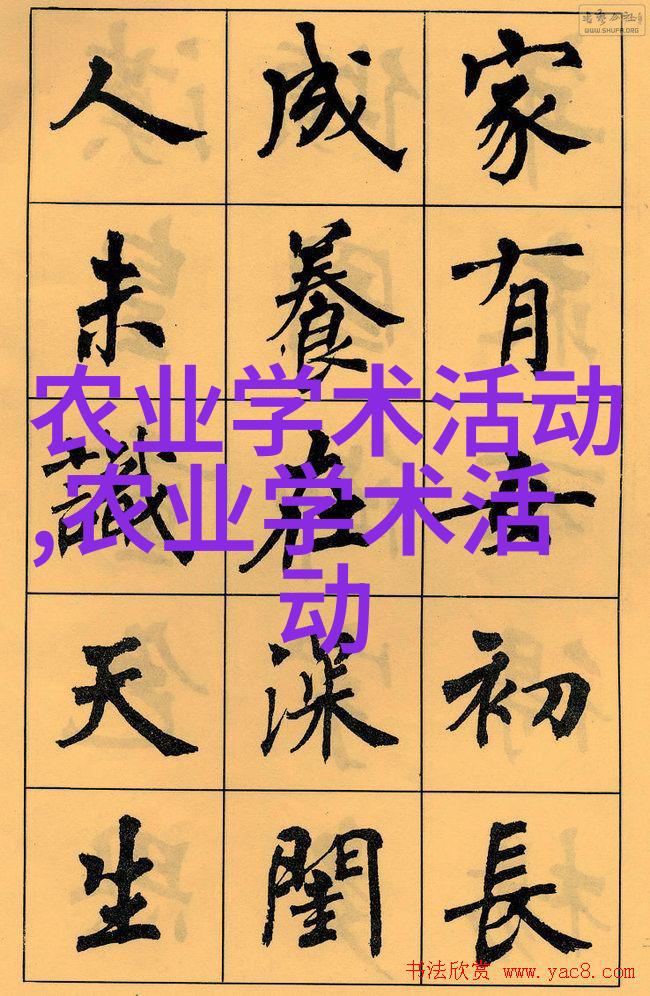 家有女初長
成養在深閨
人未識天生
农业学术活动
,农业学术活
动
WWW.SHUFA.ORG
书法欣赏 www.yac8.com